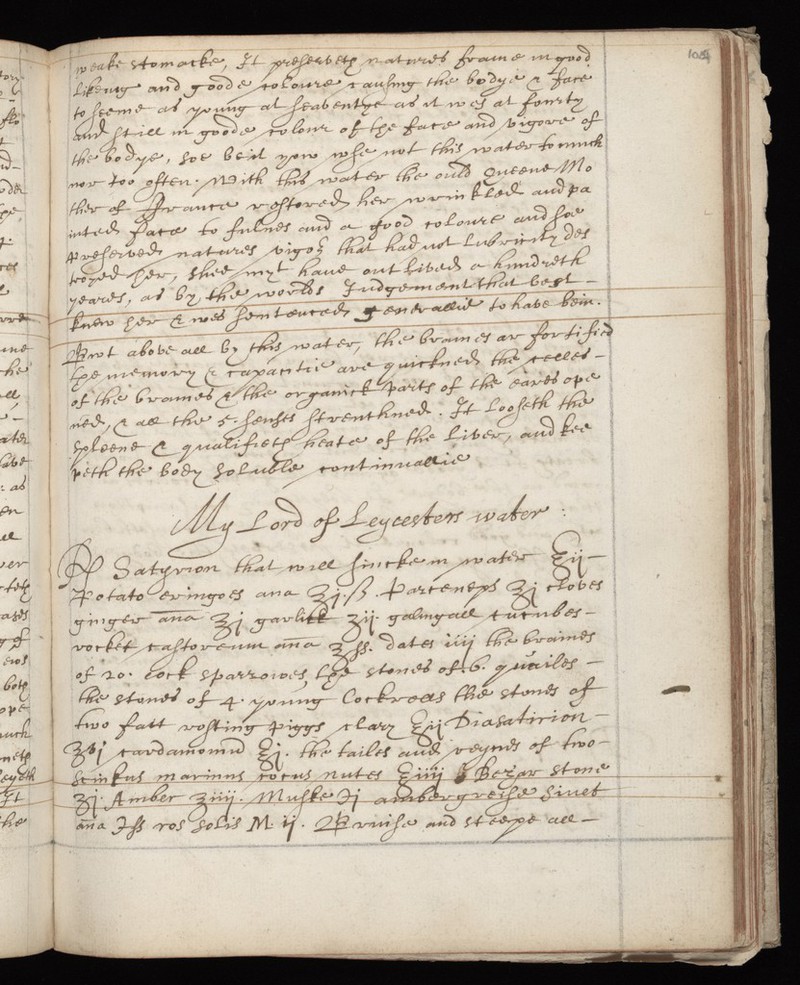 104
weake stomacke, It preserveth natures frame in good
likeing and goode coloure causing the bodye & face
to seeme as young at seaventye as it wes at fourty
and still in goode colour of the face and vigore of
the bodye, soe beit yow use not this water to much
nor too often. With this water the ould Queene Mo
ther of France restored her wrinkled and pa
inted face to fulnes and a good coloure and soe
preserved natures vigor that had not lubricity des
troyed her, shee myt have out lived a hundreth
yeares, as by the worlds Judgement that best –
knew her & wes sentenced generallie to have bein.
Bwt above all by this water, the braines ar fortified
the memory & capacitie are quickned the celles –
of the braines & the organick parts of the eares ope
ned, & all the 5. senses strenthned. It looseth the
spleene & qualifieth heate of the liver, and kee
peth the body soluble continuallie
My Lord of Leycesters water :
℞ Satyrion that will sincke in water ℥ij –
Potato eringoes ana ℥j.ß. Parceneps ℥j cloves
ginger ana ʒj garlick ʒij galingall cucubes –
rocket castoreum ana ʒss. dates iiij the braines
of 20. cock sparrowes, the stones of .6. quailes –
the stones of 4. young Cockreas the stones of
two fatt rosting piggs clary ℥ij Diasatirion –
cardamomū ℥j. the tailes and reynes of two –
scinkus marinus cocus nutes ℥iiij Bezar stone
ʒj. Amber ʒiiij. Muske ℈j ambergreise sivet
ana ℈ss ros solis M. ij. Bruise and steepe all –